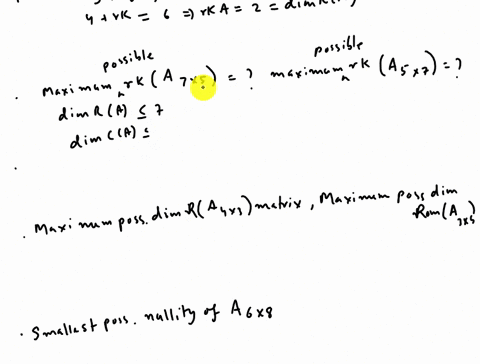 4 + rK = 6 => rK A = 2 = dim R(
possible
possible
Maximum rK (A 7x5) = ? maximum rK (A 5x7) = ?
dim R(A) ≤ 7
dim C(A) ≤
. Maximum poss. dim R(A 4x3) matrix, Maximum poss dim
Row(A 3x4)
. Smallest poss. nullity of A 6x8